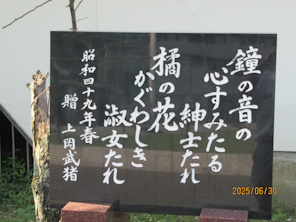 鐘の音の
心すみたる
紳士たれ
橘の花
かぐわしき
淑女たれ
昭和四十九年春
贈 上岡武猪
2025/06/30